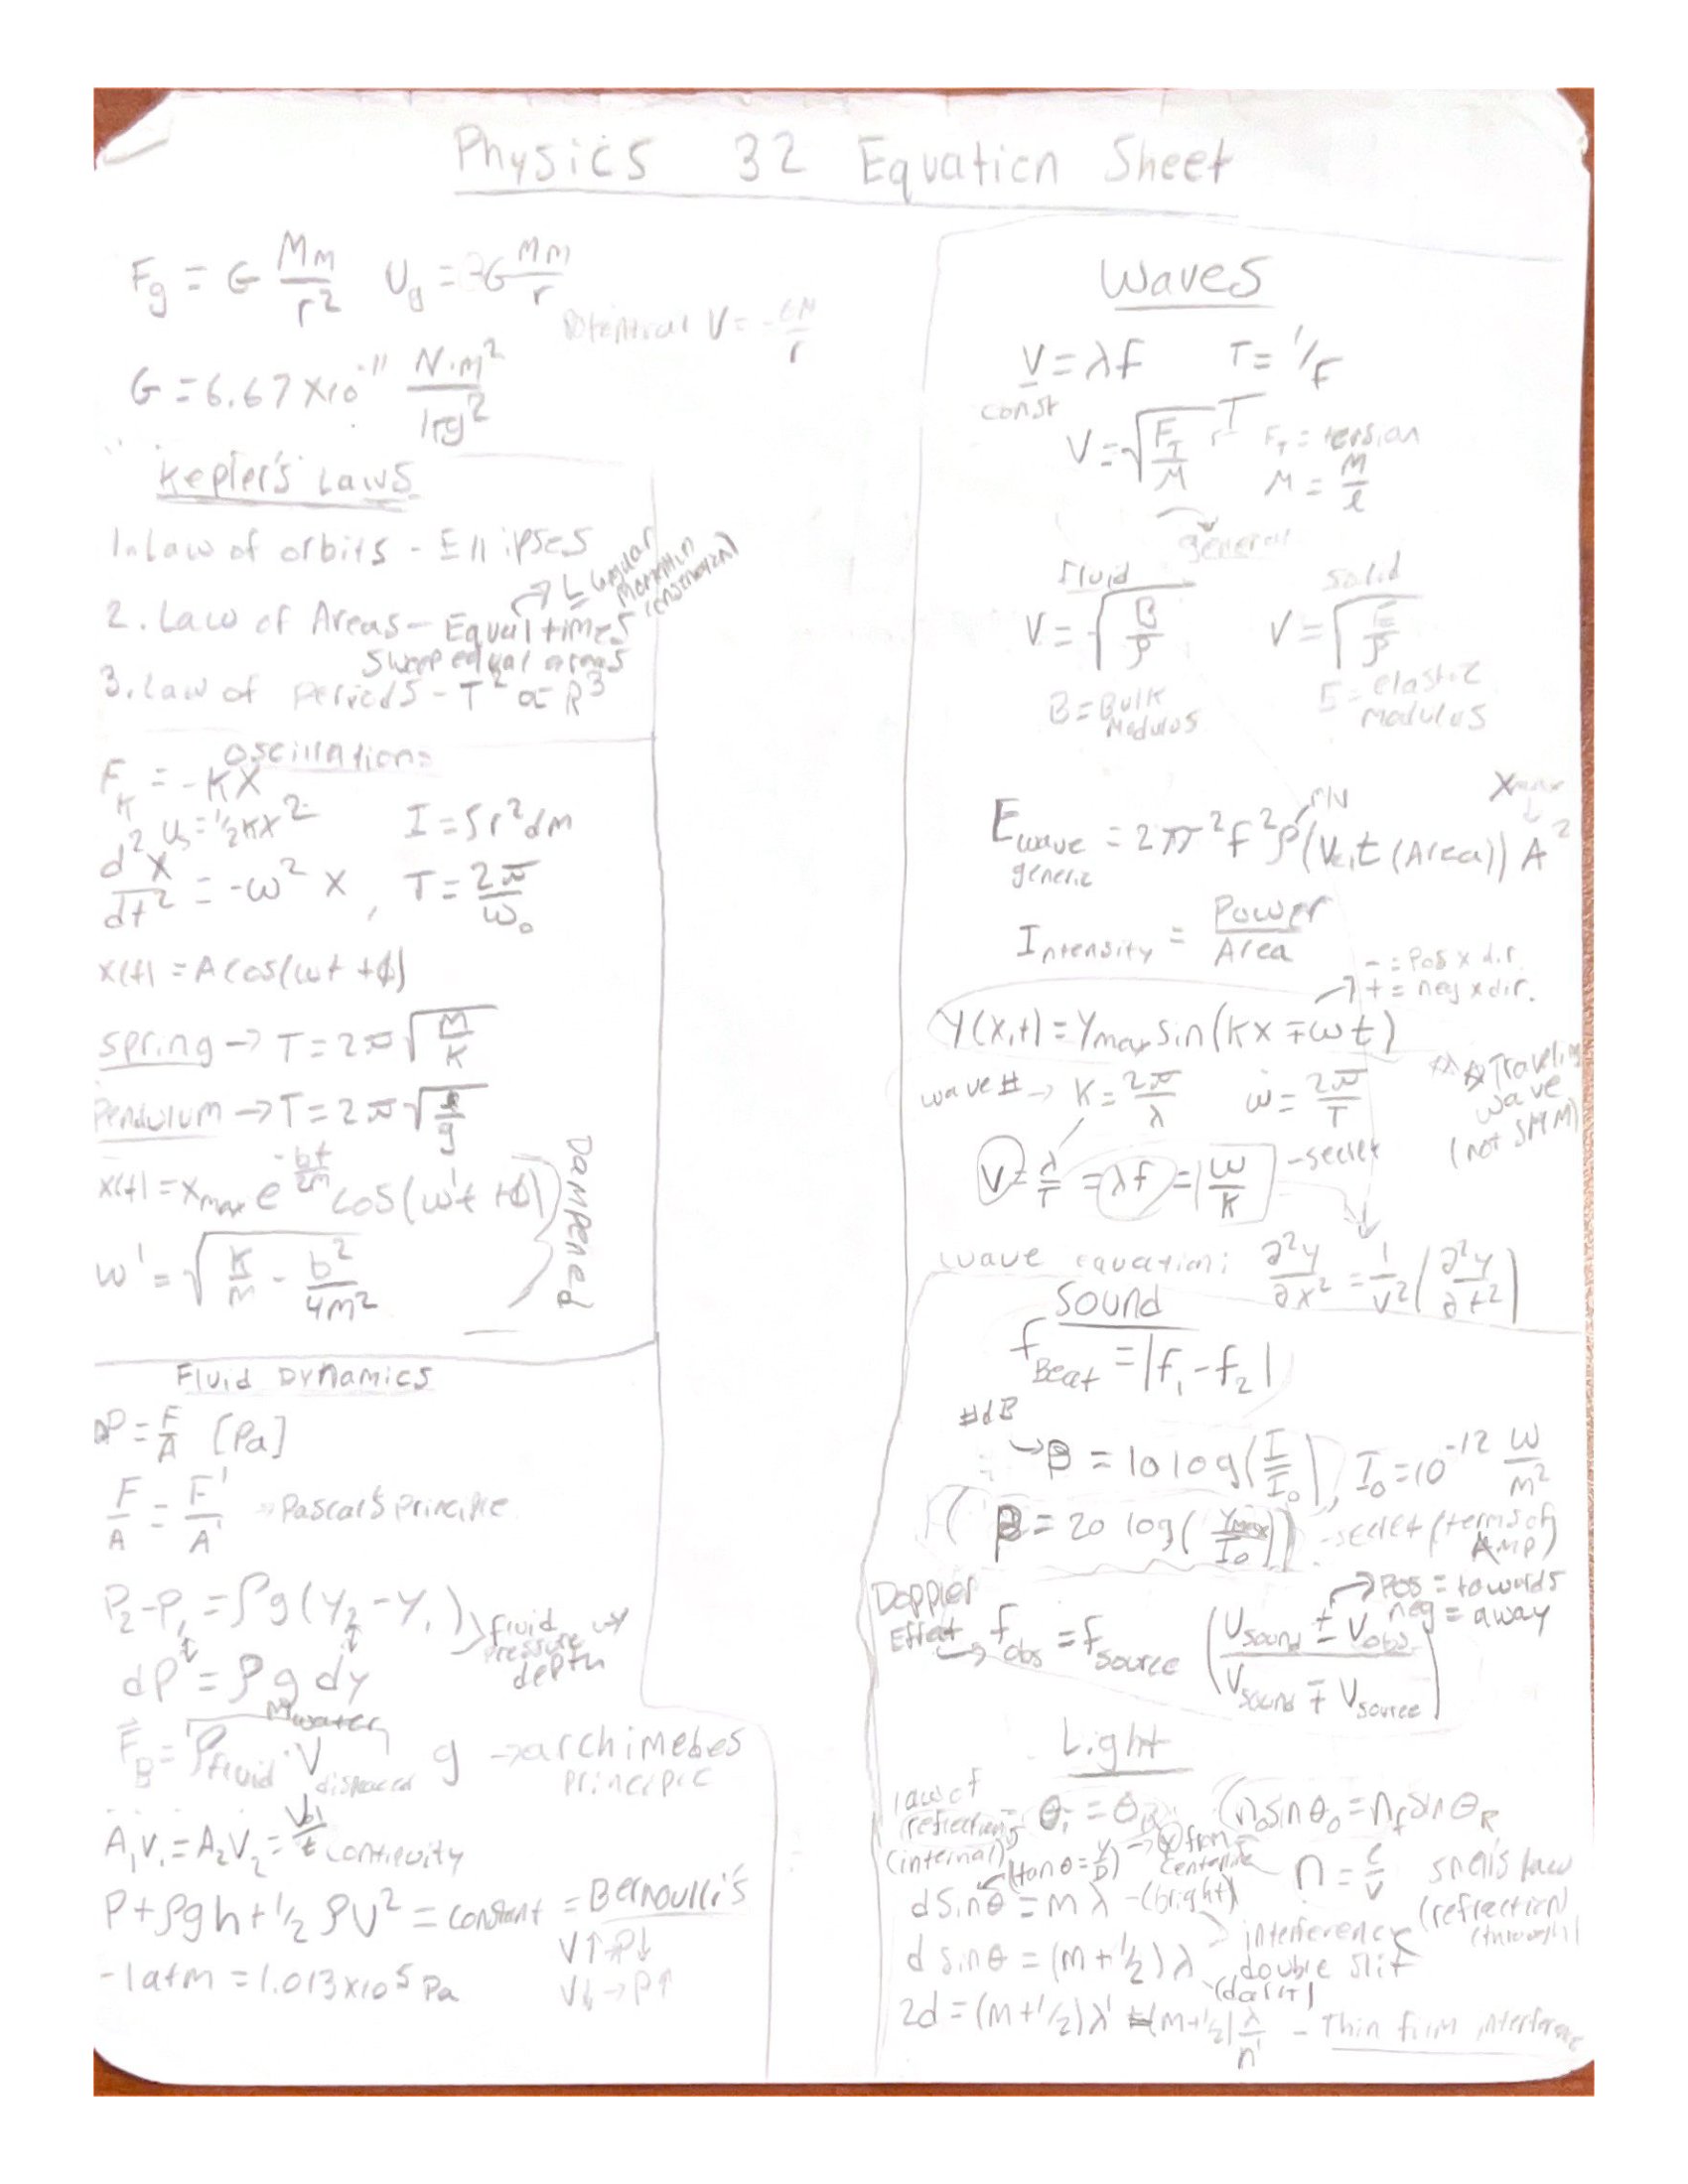 Physics 32 Equation Sheet
Fg = G Mm/r² Ug = G Mm/r
Potential V = -GM/r
G = 6.67 x10⁻¹¹ N·m²/kg²
Kepler's Laws
1. Law of orbits - Ellipses
2. Law of Areas - Equal times
sweep equal areas
→ L angular
momentum
3. Law of periods - T² ∝ R³
Oscillations
F_K = -Kx
Us = ½Kx² I = ∫r²dm
d²x/dt² = -ω² x, T = 2π/ω₀
x(t) = A cos(ωt + ϕ)
spring → T = 2π√(m/K)
Pendulum → T = 2π√(ℓ/g)
x(t) = x_max e^(-bt/2m) cos(ω't + ϕ)
ω' = √(K/m - b²/4m²)
Dampened
Fluid Dynamics
P = F/A [Pa]
F/A = F'/A' → Pascal's principle
P₂ - P₁ = ρg(y₂ - y₁)
dP = ρ g dy
fluid
pressure w/
depth
M water
F_B = ρ_fluid · V_displaced g → archimedes
principle
A₁V₁ = A₂V₂ = Vol/t continuity
P + ρgh + ½ρV² = constant = Bernoulli's
V↑ P↓
V↓ → P↑
- 1 atm = 1.013 x10⁵ Pa
Waves
V = λf T = 1/F
const
V = √(F_T/M) F_T = tension
M = M/ℓ
general
fluid solid
V = √(B/ρ) V = √(E/ρ)
B = Bulk
Modulus
E = elastic
modulus
E_wave = 2π²f²ρ(Vel t (Area)) A²
generic
m/v
X_max
Intensity = Power/Area
- = Pos x dir.
+ = neg x dir.
Y(x,t) = Y_max sin(Kx ∓ ωt)
wave # → K = 2π/λ ω = 2π/T
Traveling
wave
(not SHM)
V = λ/T = λf = ω/K - secret
wave equation: ∂²y/∂x² = 1/v² (∂²y/∂t²)
Sound
f_Beat = |f₁ - f₂|
#dB
→ β = 10 log(I/I₀), I₀ = 10⁻¹² W/m²
(β = 20 log(Y_max/I₀)) - secret (terms of
AMP)
Doppler
Effect → f_obs = f_source (V_sound ± V_obs / V_sound ∓ V_source)
Pos = towards
neg = away
Light
law of
reflection
(internal)
θᵢ = θ_R (n₀sinθ₀ = n_f sinθ_R
(tanθ = y/D) → y from
centerline
n = c/v snell's law
(refraction)
(through)
d sinθ = mλ - (bright)
d sinθ = (m+½)λ
interference
double slit
(dark)
2d = (m+½)λ' = (m+½)λ/n' - Thin film interference